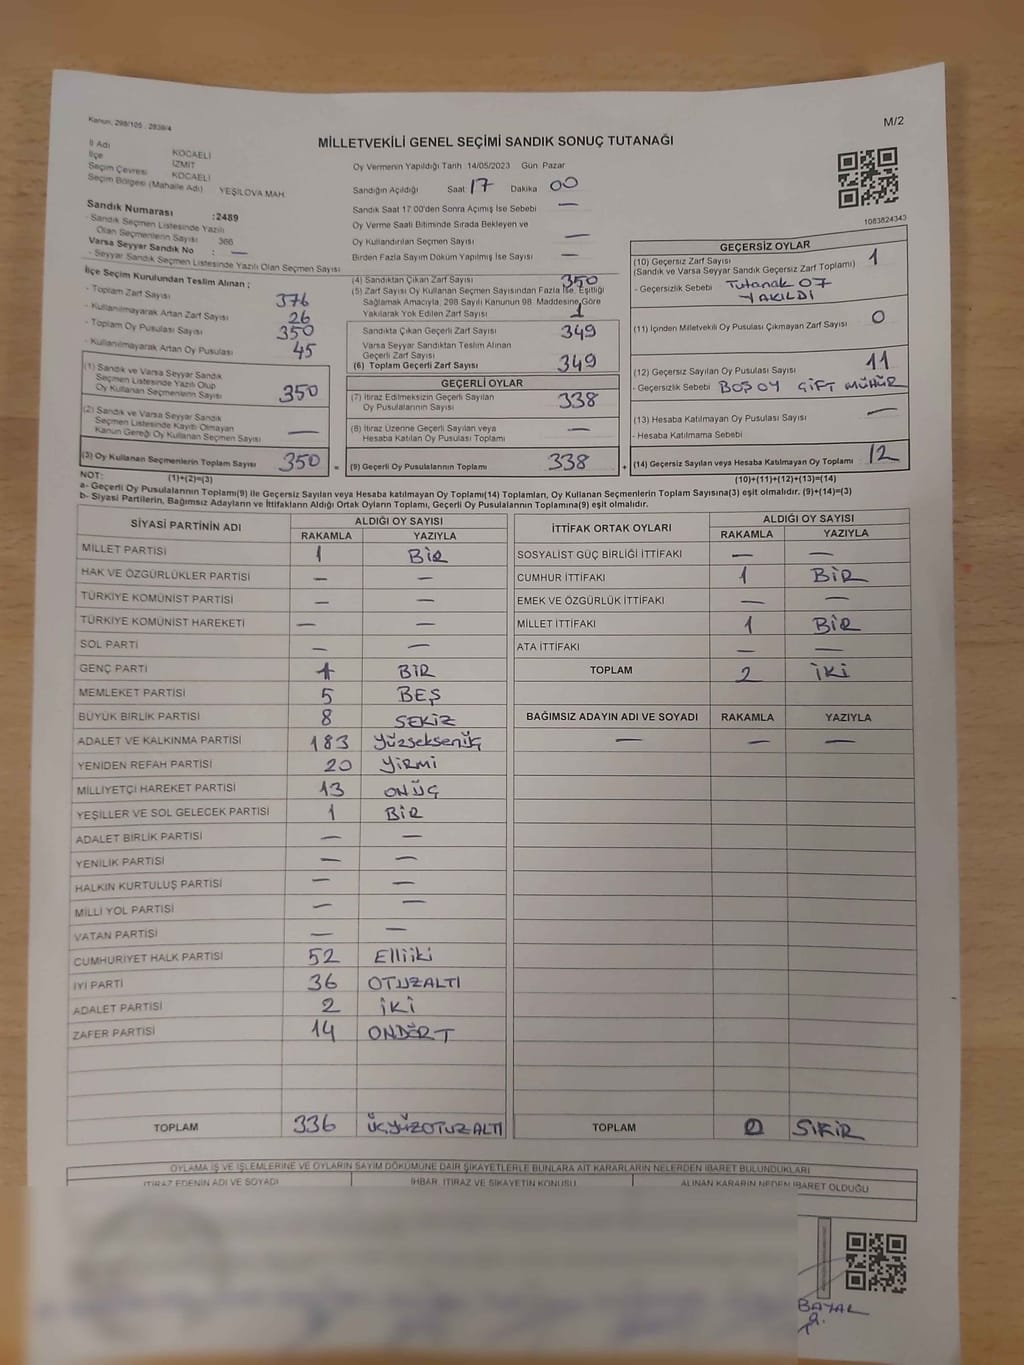 Kanun, 298/105 , 2839/4
M/2
MİLLETVEKİLİ GENEL SEÇİMİ SANDIK SONUÇ TUTANAĞI
İl Adı KOCAELİ
İlçe İZMİT
Seçim Çevresi KOCAELİ
Seçim Bölgesi (Mahalle Adı) YEŞİLOVA MAH.
Sandık Numarası :2489
- Sandık Seçmen Listesinde Yazılı
Olan Seçmenlerin Sayısı 366
Varsa Seyyar Sandık No : —
- Seyyar Sandık Seçmen Listesinde Yazılı Olan Seçmen Sayısı
Oy Vermenin Yapıldığı Tarih 14/05/2023 Gün Pazar
Sandığın Açıldığı Saat 17 Dakika 00
Sandık Saat 17.00'den Sonra Açımış İse Sebebi —
Oy Verme Saati Bitiminde Sırada Bekleyen ve
Oy Kullandırılan Seçmen Sayısı —
Birden Fazla Sayım Döküm Yapılmış İse Sayısı —
1083824343
İlçe Seçim Kurulundan Teslim Alınan ;
- Toplam Zarf Sayısı 376
- Kullanılmayarak Artan Zarf Sayısı 26
- Toplam Oy Pusulası Sayısı 350
- Kullanılmayarak Artan Oy Pusulası 45
(1) Sandık ve Varsa Seyyar Sandık
Seçmen Listesinde Yazılı Olup
Oy Kullanan Seçmenlerin Sayısı 350
(2) Sandık ve Varsa Seyyar Sandık
Seçmen Listesinde Kayıtlı Olmayan
Kanun Gereği Oy Kullanan Seçmen Sayısı —
(3) Oy Kullanan Seçmenlerin Toplam Sayısı 350 =
(4) Sandıktan Çıkan Zarf Sayısı 350
(5) Zarf Sayısı Oy Kullanan Seçmen Sayısından Fazla İse, Eşitliği
Sağlamak Amacıyla, 298 Sayılı Kanunun 98. Maddesine Göre
Yakılarak Yok Edilen Zarf Sayısı 1
Sandıkta Çıkan Geçerli Zarf Sayısı 349
Varsa Seyyar Sandıktan Teslim Alınan
Geçerli Zarf Sayısı
(6) Toplam Geçerli Zarf Sayısı 349
GEÇERLİ OYLAR
(7) İtiraz Edilmeksizin Geçerli Sayılan
Oy Pusulalarının Sayısı 338
(8) İtiraz Üzerine Geçerli Sayılan veya
Hesaba Katılan Oy Pusulası Toplamı —
(9) Geçerli Oy Pusulalarının Toplamı 338 +
GEÇERSİZ OYLAR
(10) Geçersiz Zarf Sayısı 1
(Sandık ve Varsa Seyyar Sandık Geçersiz Zarf Toplamı)
- Geçersizlik Sebebi Tutanak 07
YAKILDI
(11) İçinden Milletvekili Oy Pusulası Çıkmayan Zarf Sayısı 0
(12) Geçersiz Sayılan Oy Pusulası Sayısı 11
- Geçersizlik Sebebi BOŞ OY ÇİFT MÜHÜR
(13) Hesaba Katılmayan Oy Pusulası Sayısı —
- Hesaba Katılmama Sebebi
(14) Geçersiz Sayılan veya Hesaba Katılmayan Oy Toplamı 12
NOT: (1)+(2)=(3) (10)+(11)+(12)+(13)=(14)
a- Geçerli Oy Pusulalarının Toplamı(9) ile Geçersiz Sayılan veya Hesaba katılmayan Oy Toplamı(14) Toplamları, Oy Kullanan Seçmenlerin Toplam Sayısına(3) eşit olmalıdır. (9)+(14)=(3)
b- Siyasi Partilerin, Bağımsız Adayların ve İttifakların Aldığı Ortak Oyların Toplamı, Geçerli Oy Pusulalarının Toplamına(9) eşit olmalıdır.
SİYASİ PARTİNİN ADI ALDIĞI OY SAYISI
RAKAMLA YAZIYLA
MİLLET PARTİSİ 1 BİR
HAK VE ÖZGÜRLÜKLER PARTİSİ — —
TÜRKİYE KOMÜNİST PARTİSİ — —
TÜRKİYE KOMÜNİST HAREKETİ — —
SOL PARTİ — —
GENÇ PARTİ 1 BİR
MEMLEKET PARTİSİ 5 BEŞ
BÜYÜK BİRLİK PARTİSİ 8 SEKİZ
ADALET VE KALKINMA PARTİSİ 183 Yüzseksenüç
YENİDEN REFAH PARTİSİ 20 YİRMİ
MİLLİYETÇİ HAREKET PARTİSİ 13 ONÜÇ
YEŞİLLER VE SOL GELECEK PARTİSİ 1 BİR
ADALET BİRLİK PARTİSİ — —
YENİLİK PARTİSİ — —
HALKIN KURTULUŞ PARTİSİ — —
MİLLİ YOL PARTİSİ — —
VATAN PARTİSİ — —
CUMHURİYET HALK PARTİSİ 52 Elliiki
İYİ PARTİ 36 OTUZALTI
ADALET PARTİSİ 2 İKİ
ZAFER PARTİSİ 14 ONDÖRT
TOPLAM 336 ÜÇYÜZOTUZALTI
İTTİFAK ORTAK OYLARI ALDIĞI OY SAYISI
RAKAMLA YAZIYLA
SOSYALİST GÜÇ BİRLİĞİ İTTİFAKI — —
CUMHUR İTTİFAKI 1 BİR
EMEK VE ÖZGÜRLÜK İTTİFAKI — —
MİLLET İTTİFAKI 1 BİR
ATA İTTİFAKI — —
TOPLAM 2 İKİ
BAĞIMSIZ ADAYIN ADI VE SOYADI RAKAMLA YAZIYLA
— — —
TOPLAM 0 SIFIR
OYLAMA İŞ VE İŞLEMLERİNE VE OYLARIN SAYIM DÖKÜMÜNE DAİR ŞİKAYETLERLE BUNLARA AİT KARARLARIN NELERDEN İBARET BULUNDUKLARI
İTİRAZ EDENİN ADI VE SOYADI İHBAR, İTİRAZ VE ŞİKAYETİN KONUSU ALINAN KARARIN NEDEN İBARET OLDUĞU
BAYAL